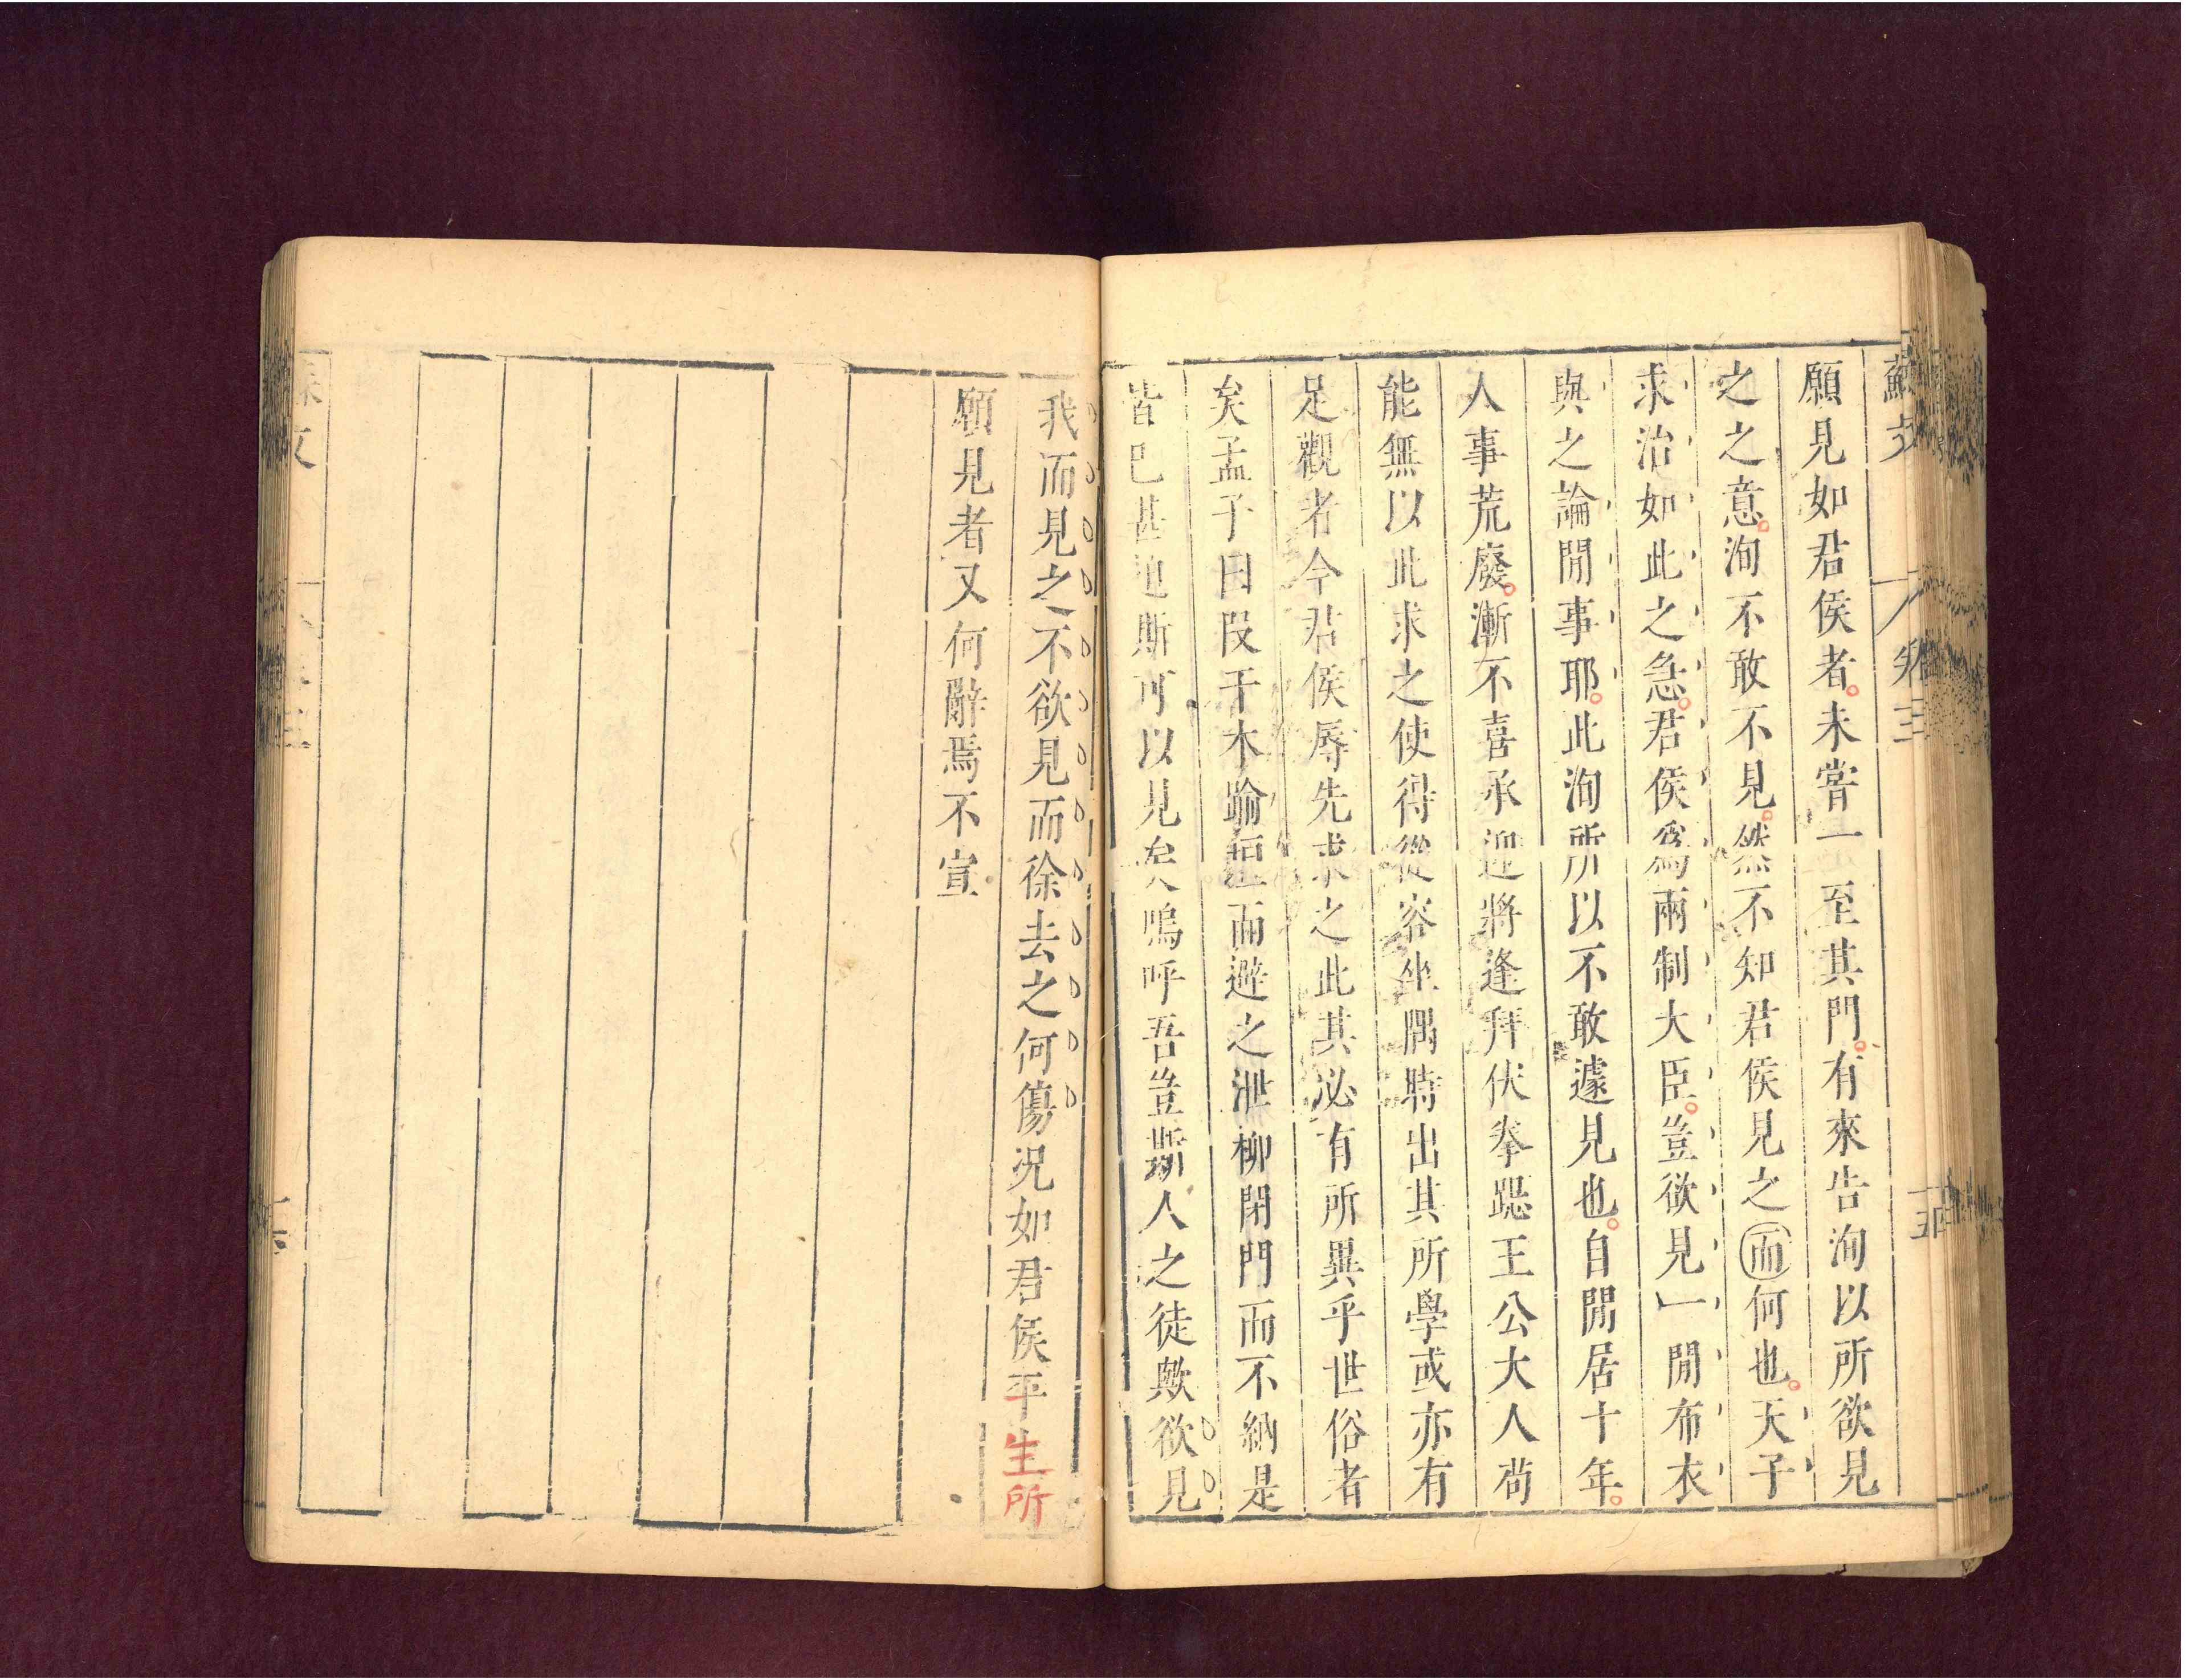 蘇文 卷三 十五
願見如君侯者未嘗一至其門有來告洵以所欲見
之之意洵不敢不見然不知君侯見之而何也天子
求治如此之急君侯爲兩制大臣豈欲見一閒布衣
與之論閒事耶此洵所以不敢遽見也自閒居十年
人事荒廢漸不喜承迎將逢拜伏拳跽王公大人苟
能無以此求之使得從容坐隅時出其所學或亦有
足觀者今君侯辱先求之此其必有所異乎世俗者
矣孟子曰段干木踰垣而避之泄柳閉門而不納是
皆已甚迫斯可以見矣嗚呼吾豈斯人之徒歟欲見
我而見之不欲見而徐去之何傷况如君侯平生所
願見者又何辭焉不宣
文